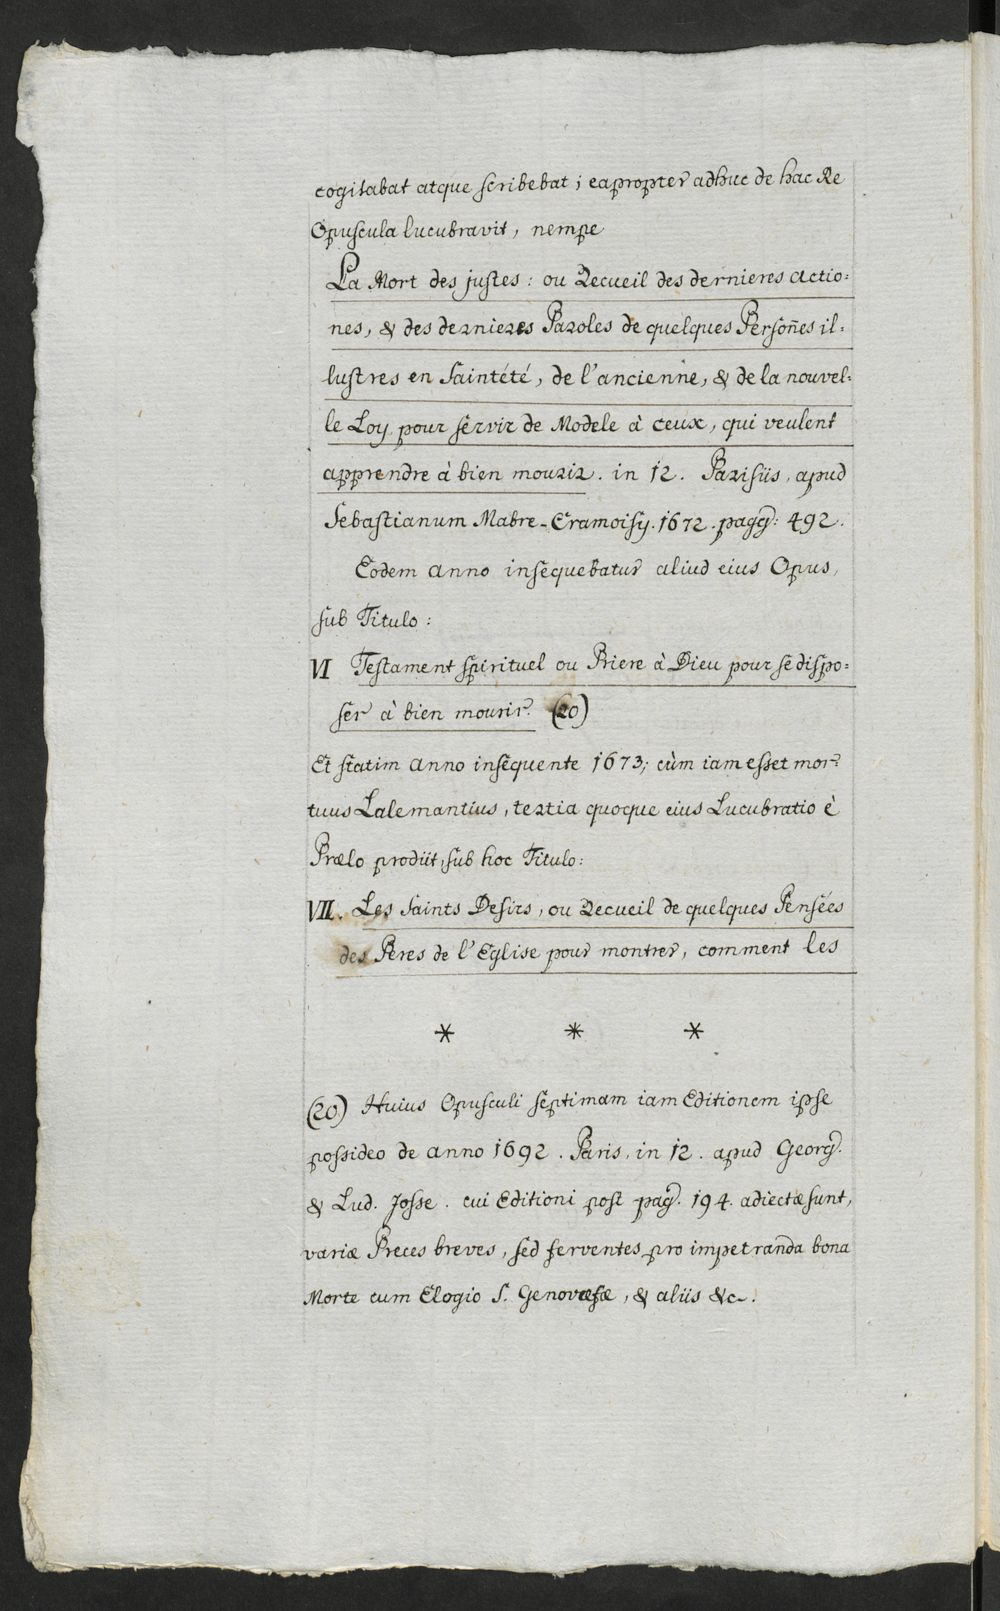 cogitabat atque scribebat; eapropter adhuc de hac Re
Opuscula lucubravit, nempe
La Mort des justes: ou Recueil des dernieres actio:
nes, & des dernieres Paroles de quelques Persones il:
lustres en Saintété, de l'ancienne, & de la nouvel:
le Loy pour servir de Modele à ceux, qui veulent
apprendre à bien mourir. in 12. Parisiis, apud
Sebastianum Mabre-Cramoisy. 1672. pagg: 492.
Eodem anno insequebatur aliud eius Opus,
sub Titulo:
VI Testament spirituel ou Priere à Dieu pour se dispo:
ser à bien mourir. (20)
Et statim anno insequente 1673; cùm iam esset mor:
tuus Lalemantius, tertia quoque eius Lucubratio è
Prælo prodiit, sub hoc Titulo:
VII. Les Saints Desirs, ou Recueil de quelques Pensées
des Peres de l'Eglise pour montrer, comment les
* * *
(20) Huius Opusculi septimam iam Editionem ipse
possideo de anno 1692. Paris, in 12. apud Georg.
& Lud. Josse. cui Editioni post pag. 194. adiectæ sunt,
variæ Preces breves, sed ferventes pro impetranda bona
Morte cum Elogio S. Genovefæ, & aliis &c.